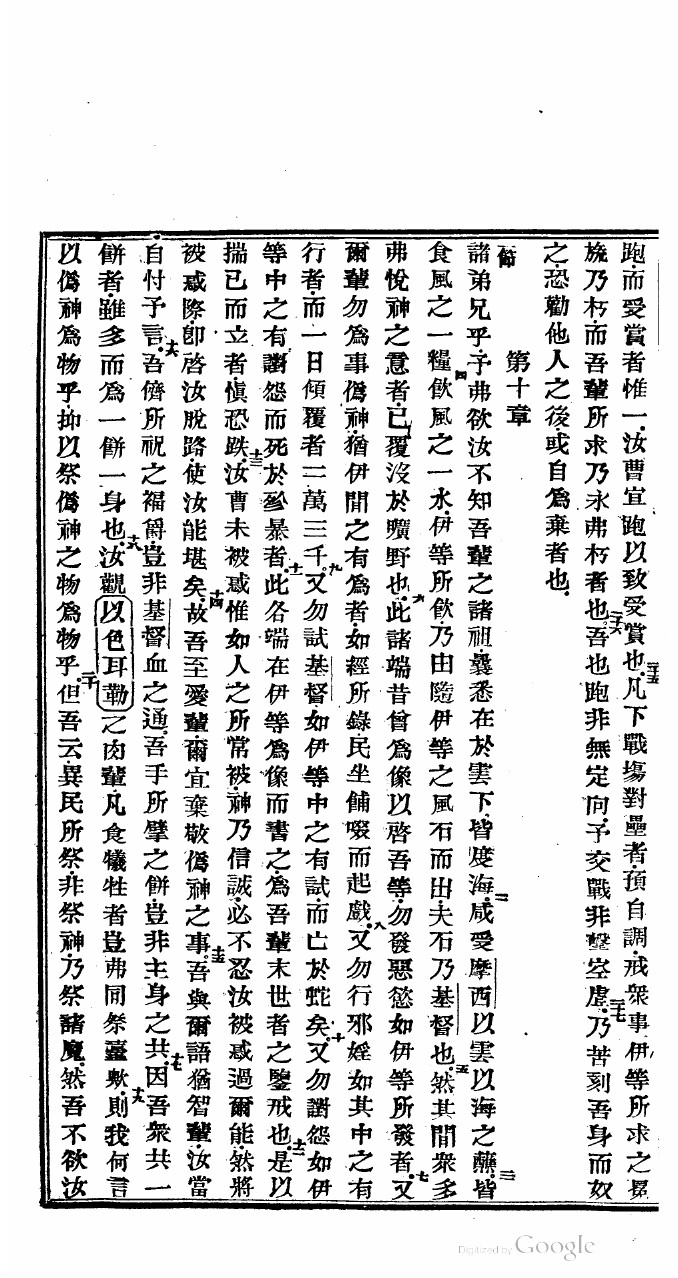 跑．而受賞者惟一．汝曹宜跑以致受賞也．二十五凡下戰塲對壘者．預自調戒衆事．伊等所求之冕
旒乃朽．而吾輩所求乃永弗朽者也．二十六吾也跑非無定向．予交戰非擊空虛．二十七乃苦刻吾身而奴
之．恐勸他人之後．或自爲棄者也．
第十章
節
諸弟兄乎．予弗欲汝不知吾輩之諸祖．曩悉在於雲下．皆度海．二咸受摩西以雲以海之蘸．三皆
食風之一糧．四飲風之一水．伊等所飲．乃由隨伊等之風石而出．夫石乃基督也．五然其間衆多
弗悅神之意者．已覆沒於曠野也．六此諸端昔曾爲像．以啓吾等．勿發惡慾如伊等所發者．七又
爾輩勿爲事僞神．猶伊間之有爲者．如經所錄．民坐餔啜而起戲．八又勿行邪婬．如其中之有
行者．而一日傾覆者二萬三千．九又勿試基督．如伊等中之有試．而亡於蛇矣．十又勿讟怨．如伊
等中之有讟怨而死於殄暴者．十一此各端在伊等爲像．而書之爲吾輩末世者之鑒戒也．十二是以
揣已而立者．愼恐跌．十三汝曹未被惑．惟如人之所常被．神乃信誠．必不忍汝被惑過爾能．然將
被惑際．卽啓汝脫路．使汝能堪矣．十四故吾至愛輩．爾宜棄敬僞神之事．十五吾與爾語猶智輩．汝當
自忖予言．十六吾儕所祝之福爵．豈非基督血之通．吾手所擘之餅．豈非主身之共．十七因吾衆共一
餅者．雖多而爲一餅一身也．十八汝觀以色耳勒之肉輩．凡食犧牲者．豈弗同祭臺歟．十九則我何言．
以僞神爲物乎．抑以祭僞神之物爲物乎．二十但吾云異民所祭．非祭神．乃祭諸魔．然吾不欲汝
Digitized by Google